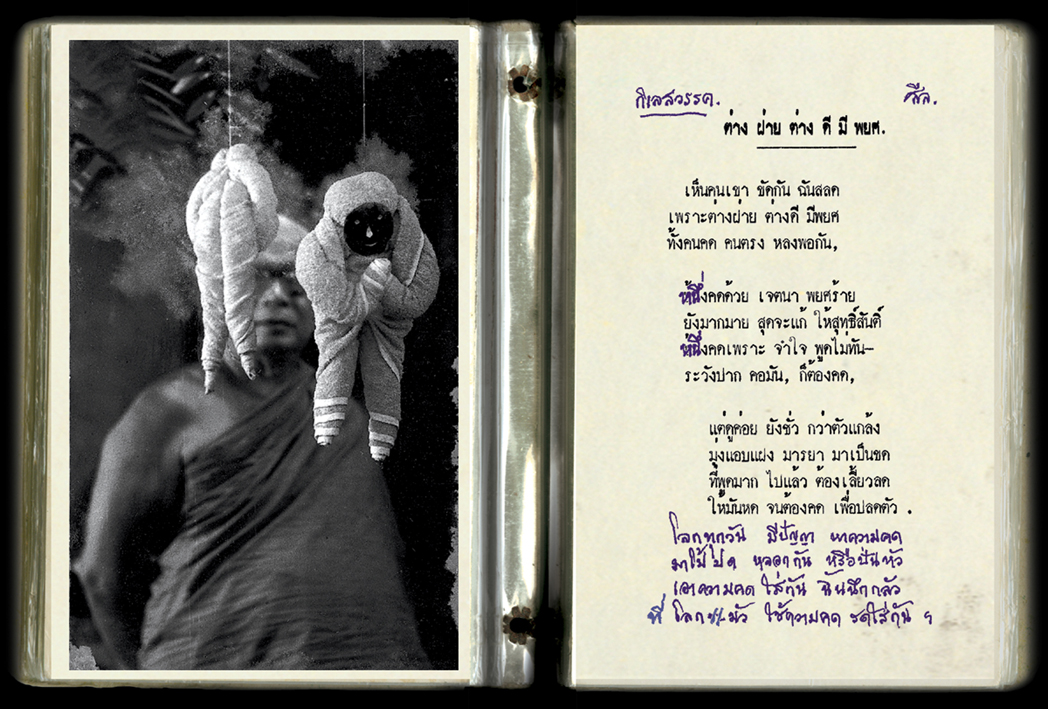 กิเลสวรรค. ศีล.
ต่าง ฝ่าย ต่าง ดี มี พยศ.
เห็นคนเขา ขัดกัน ฉันสลด
เพราะต่างฝ่าย ต่างดี มีพยศ
ทั้งคนคด คนตรง หลงพอกัน,
หนึ่งคดด้วย เจตนา พยศร้าย
ยังมากมาย สุดจะแก้ ให้สุทธิ์สันติ์
หนึ่งคดเพราะ จำใจ พูดไม่ทัน—
ระวังปาก คอมัน, ก็ต้องคด,
แต่ดูค่อย ยังชั่ว กว่าตัวแกล้ง
มุ่งแอบแฝง มารยา มาเป็นขด
ที่พูดมาก ไปแล้ว ต้องเลี้ยวลด
ให้มันหด จนต้องคด เพื่อปลดตัว .
โลกทุกวัน มีปัญญา หาความคด
มาใช้ปด หลอกกัน หรือปั่นหัว
เอาความคด ใส่กัน ฉันนึกกลัว
ที่ โลก มัว ใช้ความคด ใส่กัน ฯ